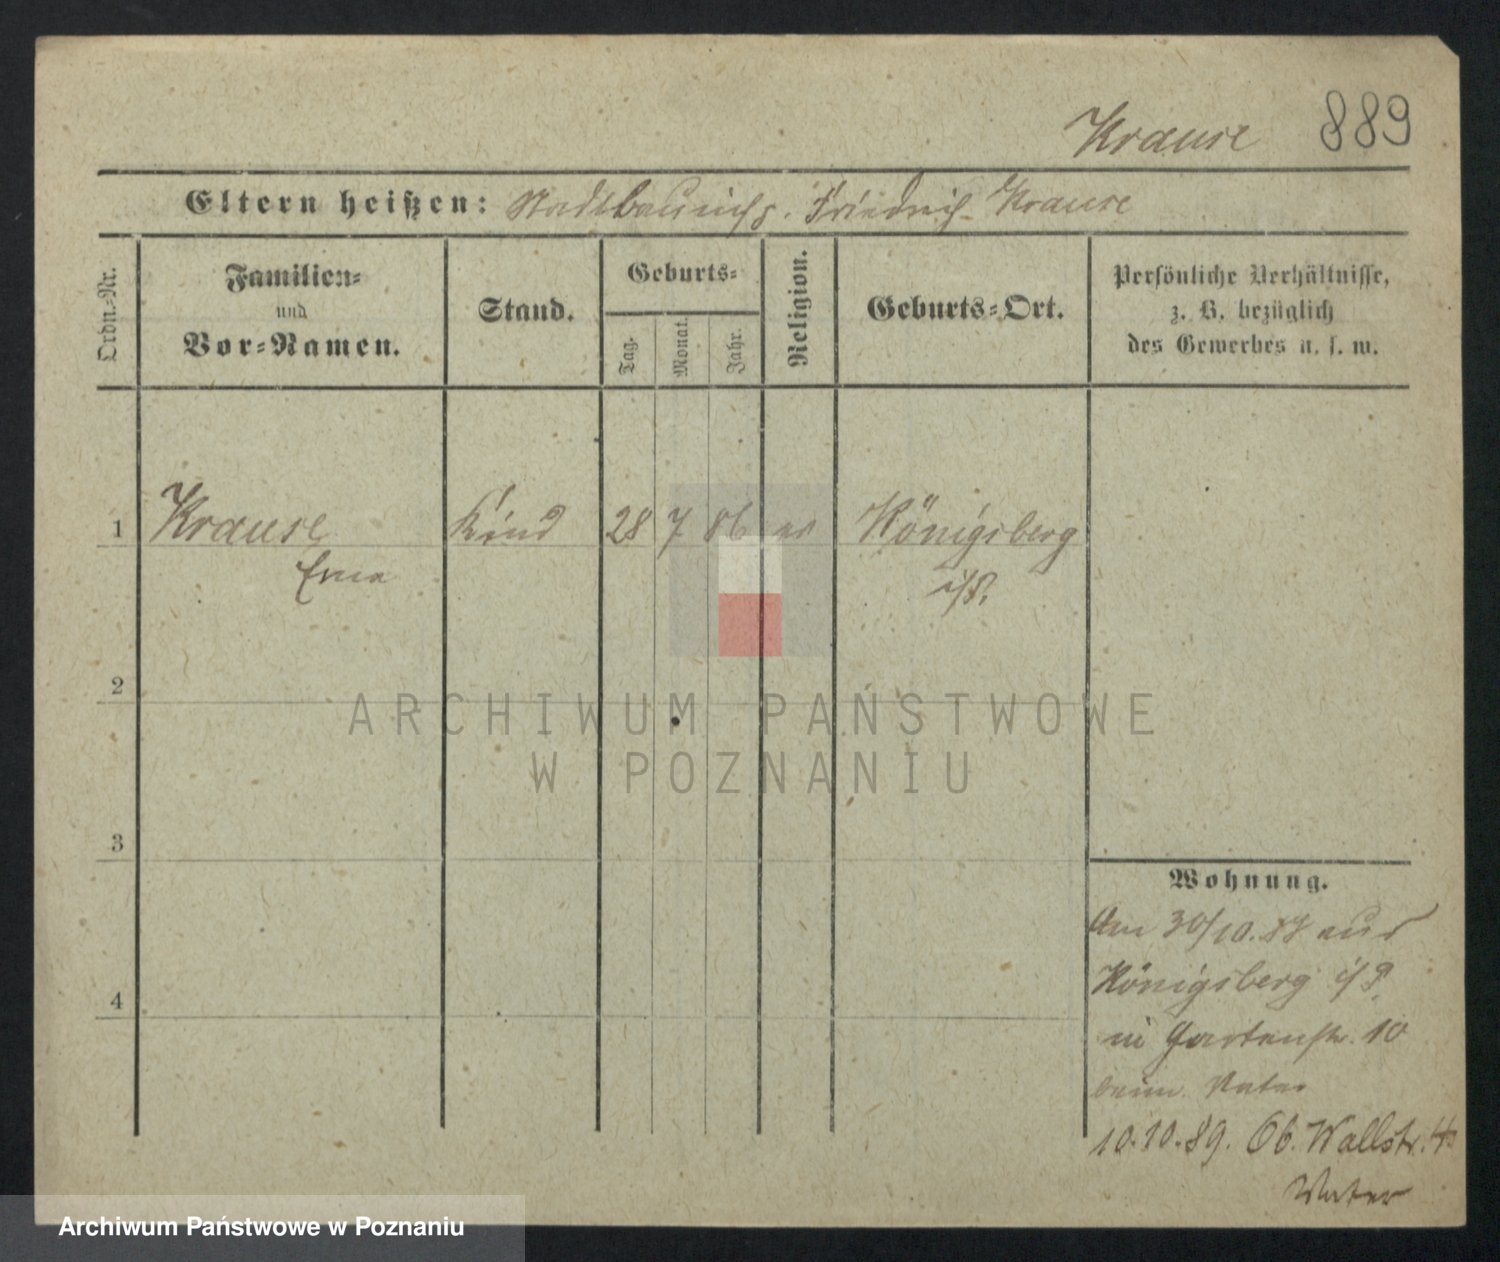 Krause 889
Eltern heißen: Stadtbauinsp. Friedrich Krause
Ordn.-Nr.
Familien-
und
Vor-Namen.
Stand.
Geburts-
Tag.
Monat.
Jahr.
Religion.
Geburts-Ort.
Persönliche Verhältnisse,
z. B. bezüglich
des Gewerbes u. s. w.
1 Krause Kind 28 7 86 ev Königsberg
Erna i/P.
2
ARCHIWUM PAŃSTWOWE
W POZNANIU
3
Wohnung.
Am 30/10. 87 aus
Königsberg i/P.
4
in Gartenstr. 10
beim Vater
10.10.89. Ob. Wallstr.
Vater
Archiwum Państwowe w Poznaniu